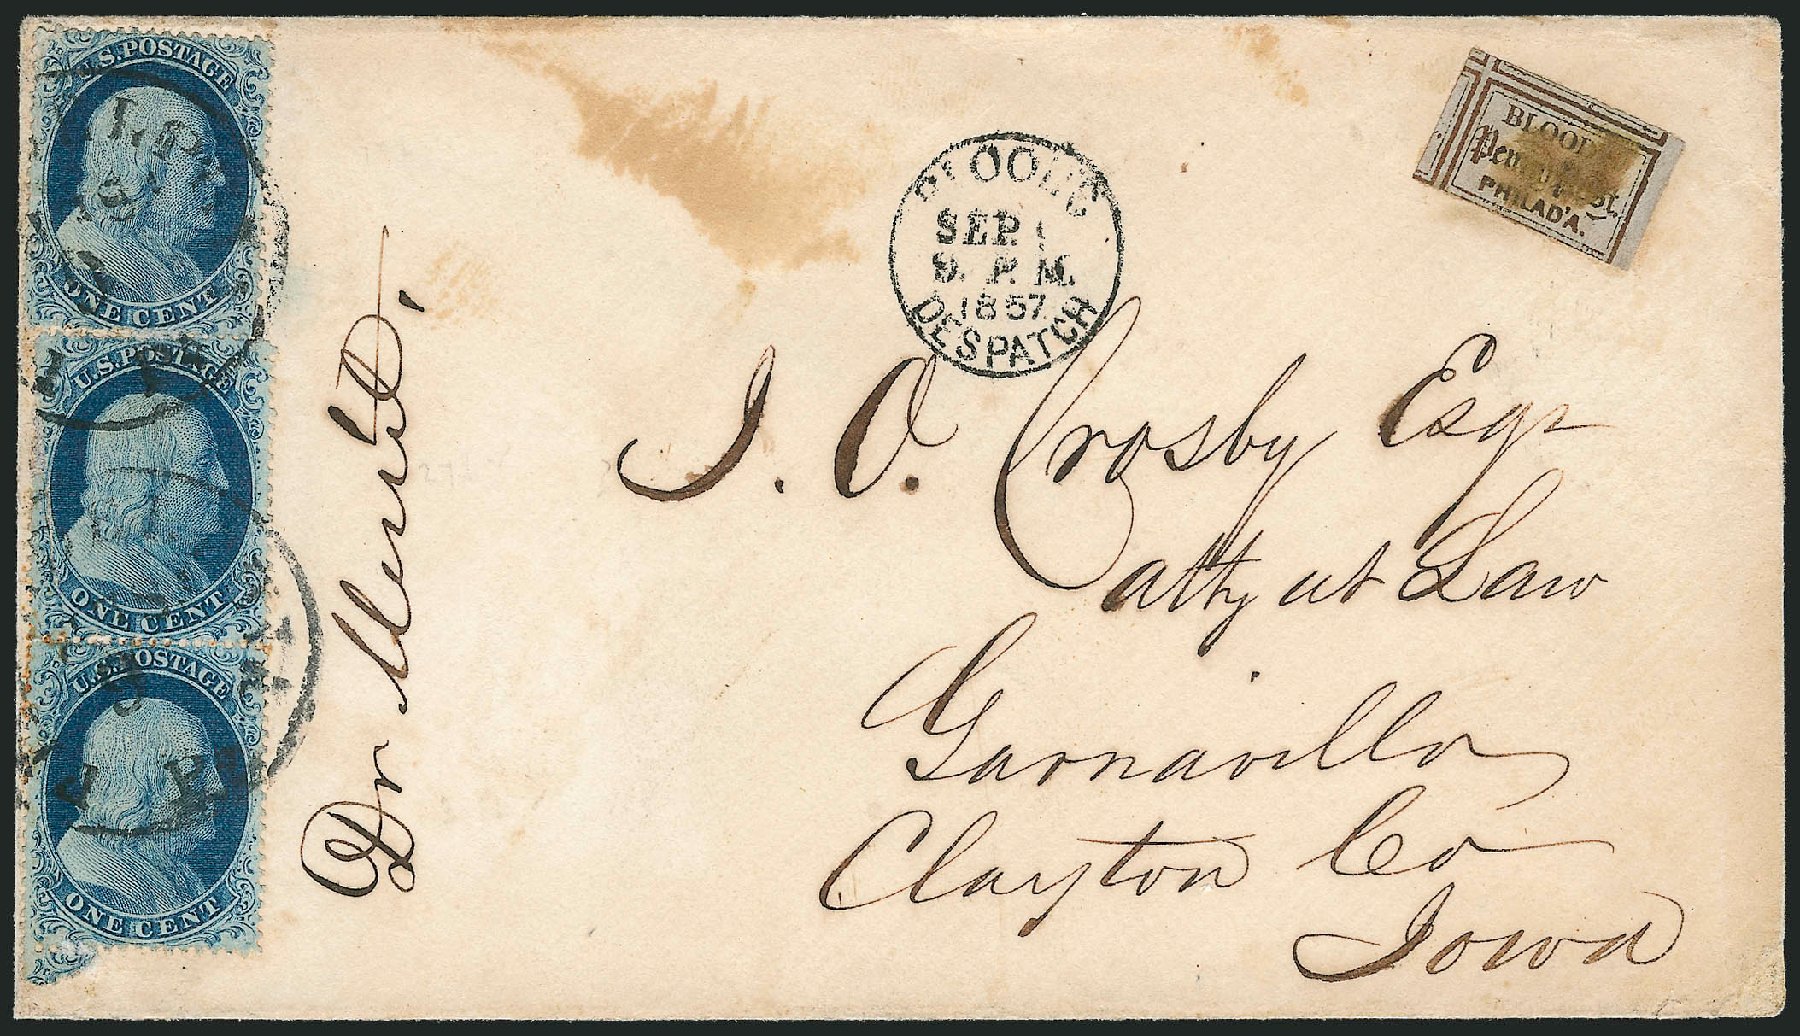 U.S. POSTAGE
ONE CENT
U.S. POSTAGE
ONE CENT
U.S. POSTAGE
ONE CENT
BLOOD'S
SEP.
9. P. M.
1857
DESPATCH
BLOOD'S
Penny Post.
PHILAD'A.
Dr
J. O. Crosby Esqr
atty at Law
Garnavillo
Clayton Co
Iowa